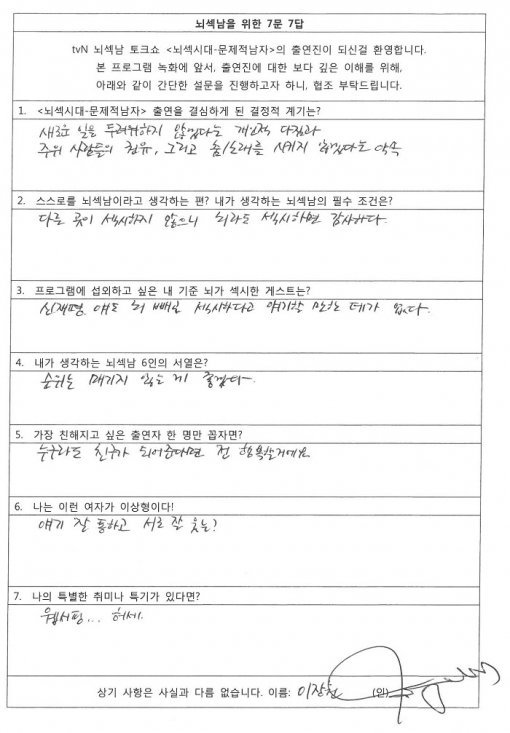 뇌섹남을 위한 7문 7답
tvN 뇌섹남 토크쇼 <뇌섹시대-문제적남자>의 출연진이 되신걸 환영합니다.
본 프로그램 녹화에 앞서, 출연진에 대한 보다 깊은 이해를 위해,
아래와 같이 간단한 설문을 진행하고자 하니, 협조 부탁드립니다.
1. <뇌섹시대-문제적남자> 출연을 결심하게 된 결정적 계기는?
새로운 일을 두려워하지 않겠다는 개인적 다짐과
주위 사람들의 권유, 그리고 춤/노래를 시키지 않겠다는 약속
2. 스스로를 뇌섹남이라고 생각하는 편? 내가 생각하는 뇌섹남의 필수 조건은?
다른 곳이 섹시하지 않으니 뇌라도 섹시하면 감사하다.
3. 프로그램에 섭외하고 싶은 내 기준 뇌가 섹시한 게스트는?
신재평. 얘도 뇌 빼곤 섹시하다고 얘기할 만한 데가 없다.
4. 내가 생각하는 뇌섹남 6인의 서열은?
순위는 매기지 않는 게 좋겠다.
5. 가장 친해지고 싶은 출연자 한 명만 꼽자면?
누구라도 친구가 되어준다면 전 행복할거예요
6. 나는 이런 여자가 이상형이다!
얘기 잘 통하고 서로 잘 웃는?
7. 나의 특별한 취미나 특기가 있다면?
웹서핑... 허세.
상기 사항은 사실과 다름 없습니다. 이름: 이장원 (인)